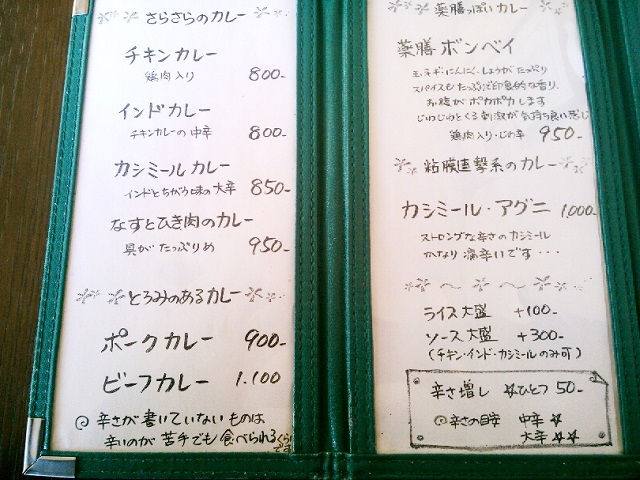 さらさらのカレー
チキンカレー
鶏肉入り 800-
インドカレー
チキンカレーの中辛 800-
カシミールカレー
インドとちがう味の大辛 850-
なすとひき肉のカレー
具がたっぷりめ 950-
とろみのあるカレー
ポークカレー 900-
ビーフカレー 1.100
辛さが書いていないものは
辛いのが苦手でも食べられるくらい
です
薬膳っぽいカレー
薬膳ボンベイ
玉ネギ・にんにく・しょうがたっぷり
スパイスもたっぷりで印象的な香り。
お腹がポカポカします
じわじわとくる刺激が気持ち良い感じ
鶏肉入り・じわ辛 950-
粘膜直撃系のカレー
カシミール・アグニ 1.000-
ストロングな辛さのカシミール
かなり痛辛いです・・・
ライス大盛 +100-
ソース大盛 +300-
(チキン・インド・カシミールのみ可)
辛さ増し ☆ひとつ 50-
辛さの目安 中辛 ☆
大辛 ☆☆